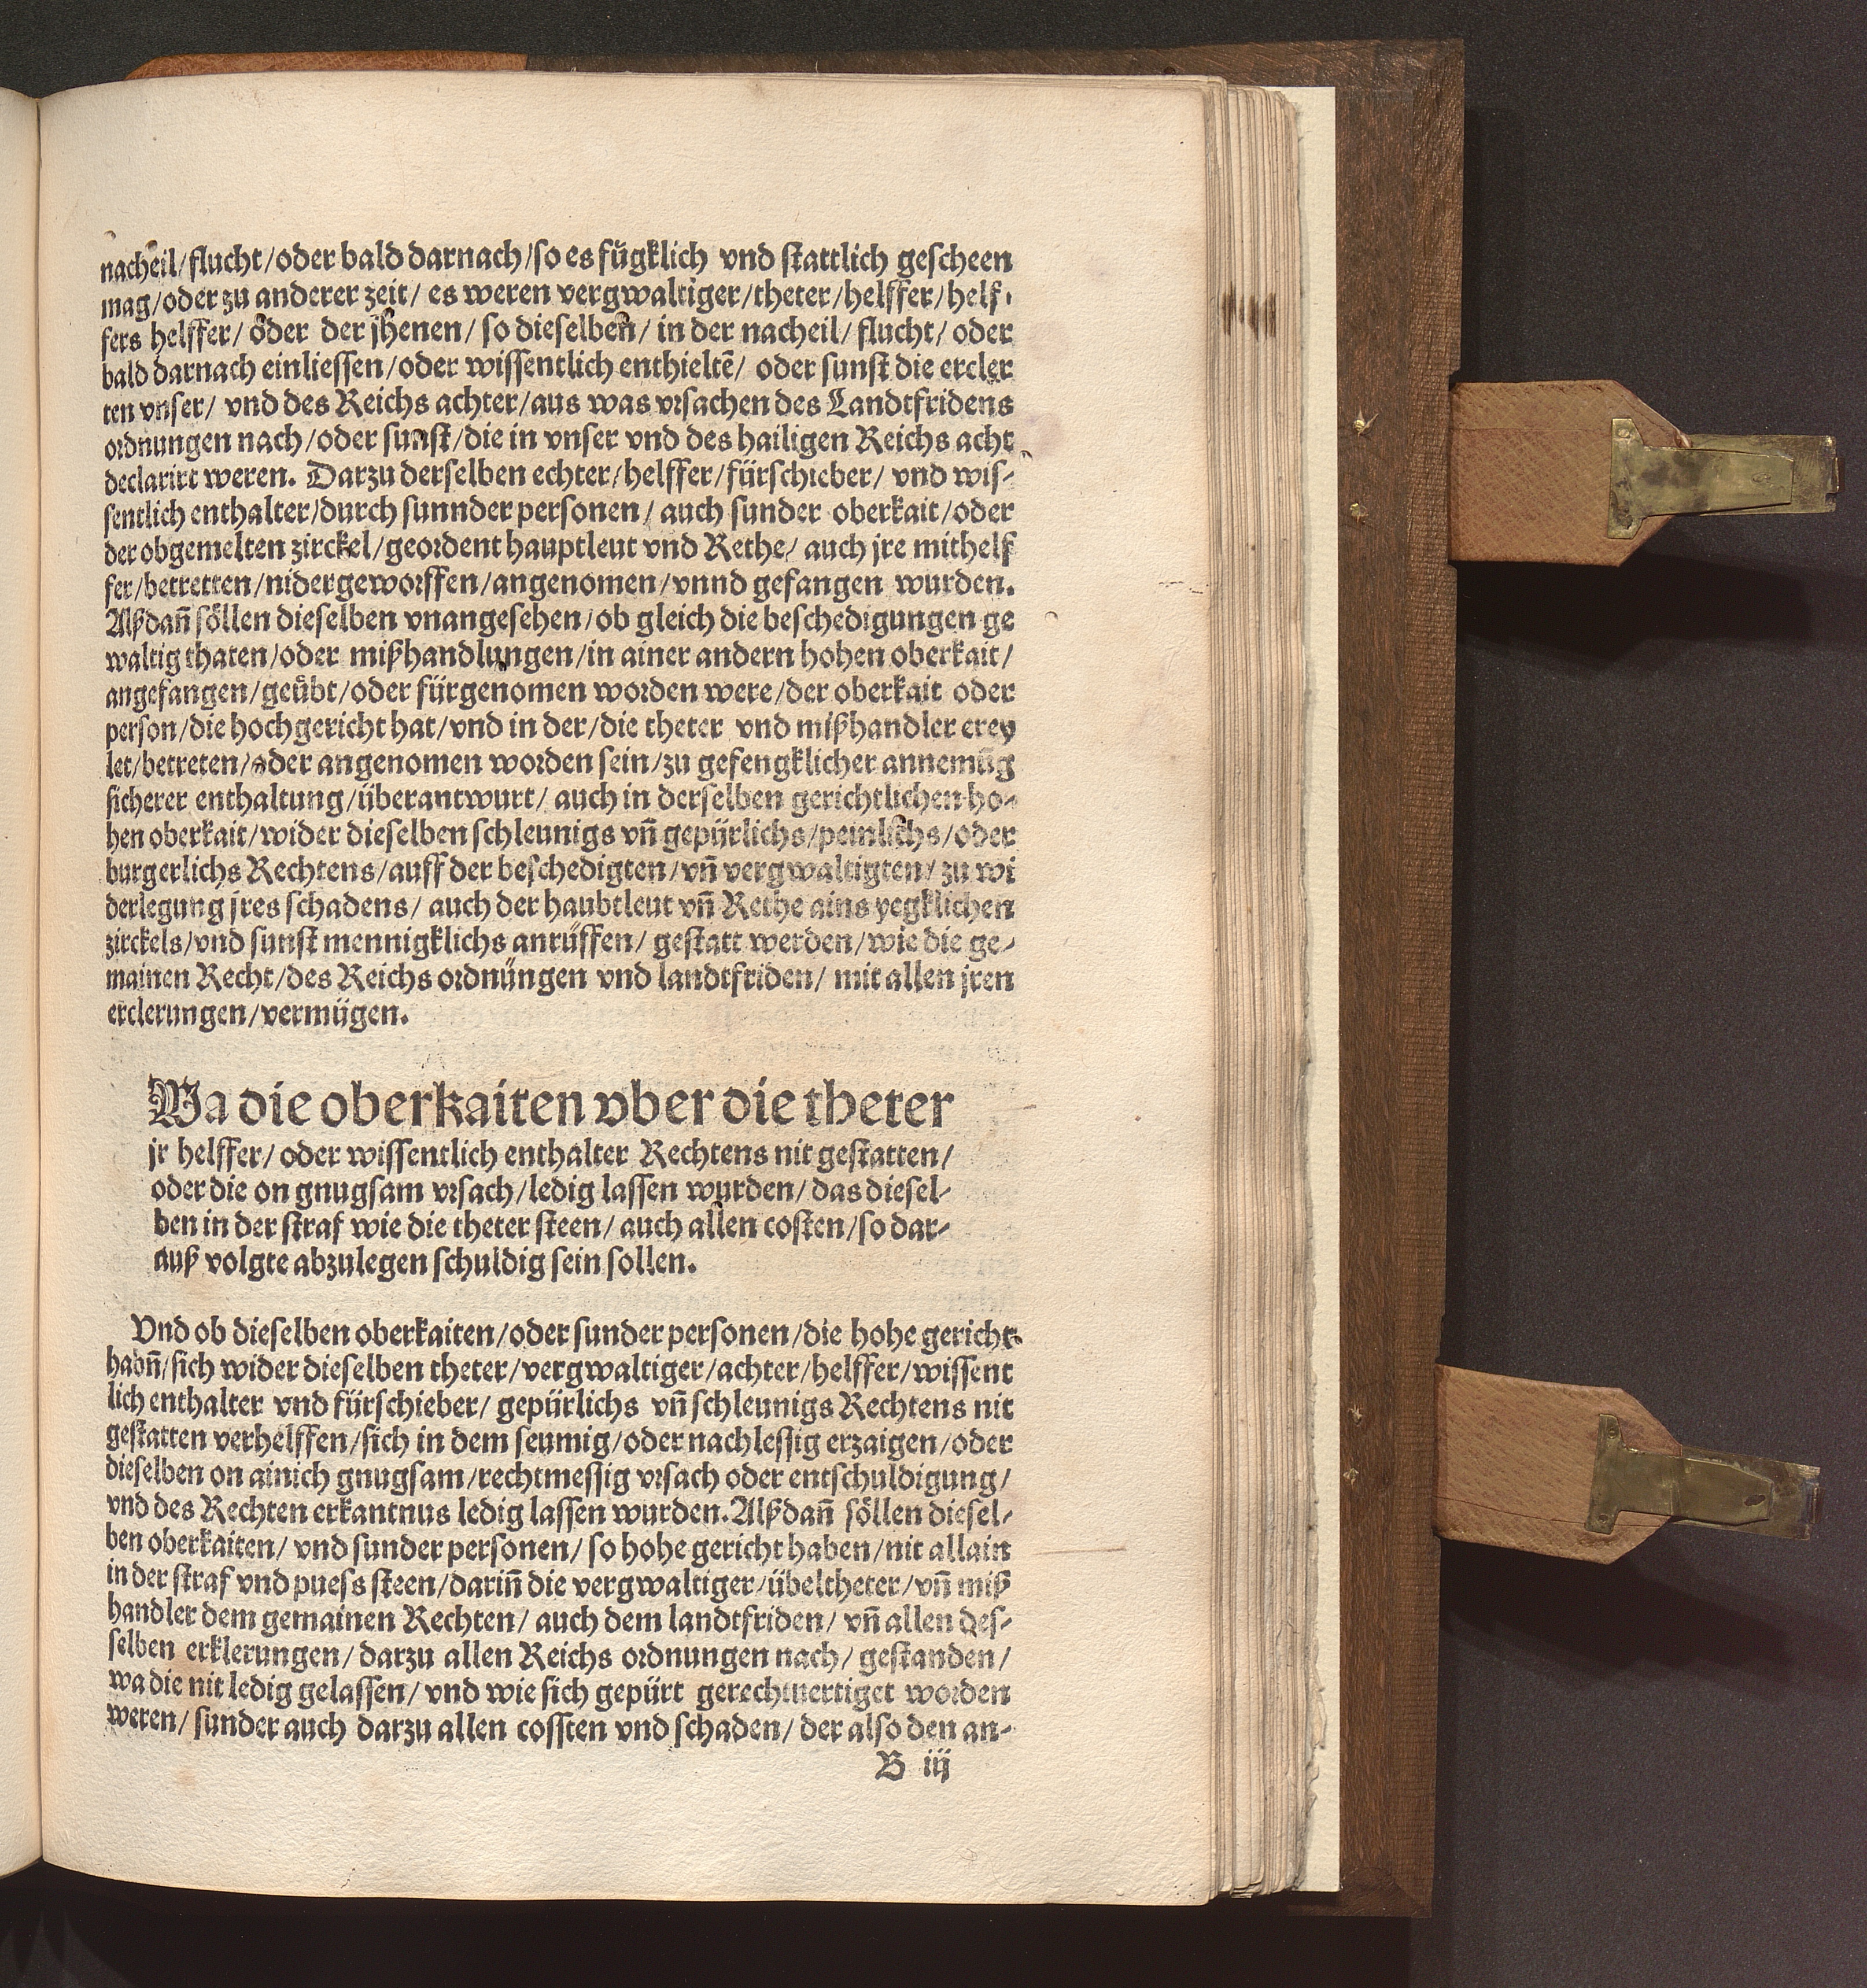 nacheil/flucht/oder bald darnach/so es fügklich vnd stattlich gescheen
mag/oder zu anderer zeit/ es weren vergwaltiger/theter/helffer/helf-
fers helffer/ oder der jhenen/ so dieselben/ in der nacheil/ flucht/ oder
bald darnach einliessen/oder wissentlich enthieltē/ oder sunst die ercler
ten vnser/ vnd des Reichs achter/aus was vrsachen des Landtfridens
ordnungen nach/oder sunst/die in vnser vnd des hailigen Reichs acht
declarirt weren. Darzu derselben echter/helffer/fürschieber/ vnd wis-
sentlich enthalter/durch sunnder personen/ auch sunder oberkait/oder
der obgemelten zirckel/geordent hauptleut vnd Rethe/ auch jre mithelf
fer/betretten/nidergeworffen/angenomen/vnnd gefangen wurden.
Alßdañ söllen dieselben vnangesehen/ob gleich die beschedigungen ge
waltig thaten/oder mißhandlungen/in ainer andern hohen oberkait/
angefangen/geübt/oder fürgenomen worden were/der oberkait oder
person/die hochgericht hat/vnd in der/die theter vnd mißhandler erey
let/betreten/oder angenomen worden sein/zu gefengklicher annemūg
sicherer enthaltung/überantwurt/ auch in derselben gerichtlichen ho-
hen oberkait/wider dieselben schleunigs vñ gepürlichs/peinlichs/oder
burgerlichs Rechtens/auff der beschedigten/vñ vergwaltigten/ zu wi
derlegung jres schadens/ auch der haubtleut vñ Rethe ains yegklichen
zirckels/vnd sunst mennigklichs anrüffen/ gestatt werden/wie die ge-
mainen Recht/des Reichs ordnüngen vnd landtfriden/ mit allen jren
erclerungen/vermügen.
Wa die oberkaiten vber die theter
jr helffer/ oder wissentlich enthalter Rechtens nit gestatten/
oder die on gnugsam vrsach/ledig lassen wurden/ das diesel-
ben in der straf wie die theter steen/ auch allen costen/so dar-
auß volgte abzulegen schuldig sein sollen.
Vnd ob dieselben oberkaiten/oder sunder personen/die hohe gericht
habñ/sich wider dieselben theter/vergwaltiger/achter/helffer/wissent
lich enthalter vnd fürschieber/ gepürlichs vñ schleunigs Rechtens nit
gestatten verhelffen/sich in dem seumig/oder nachlessig erzaigen/oder
dieselben on ainich gnugsam/rechtmessig vrsach oder entschuldigung/
vnd des Rechten erkantnus ledig lassen wurden. Alßdañ söllen diesel-
ben oberkaiten/ vnd sunder personen/ so hohe gericht haben/nit allain
in der straf vnd puess steen/dariñ die vergwaltiger/übeltheter/vñ miß
handler dem gemainen Rechten/ auch dem landtfriden/ vñ allen des-
selben erklerungen/ darzu allen Reichs ordnungen nach/ gestanden/
wa die nit ledig gelassen/ vnd wie sich gepürt gerechtuertiget worden
weren/ sunder auch darzu allen cossten vnd schaden/ der also den an-
B iij